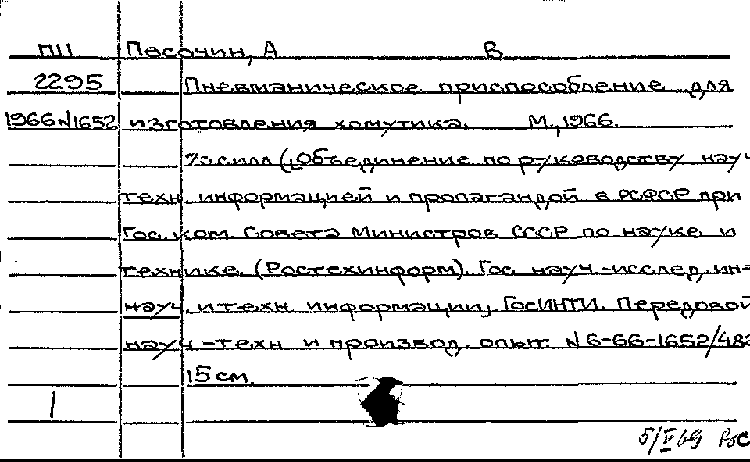 ПН Песочин, А В
2295 Пневманическое приспособление для
1966 N1652 изготовления хомутика. М., 1966.
7з с илл (Объединение по руководству науч
техн. информацией и пропагандой в РСФСР при
Гос. ком. Совета Министров СССР по науке и
технике. (Ростехинформ). Гос. науч-исслед. ин-
науч. и техн. информации, ГосИНТИ. Передовой
науч-техн и производ. опыт. N6-66-1652/482
15 см.
5/V 69 Рос